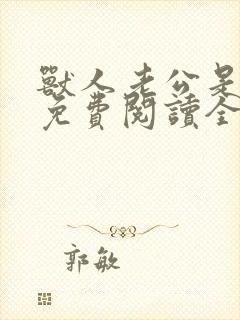 獸人老公是
免費閱讀全
郭敏